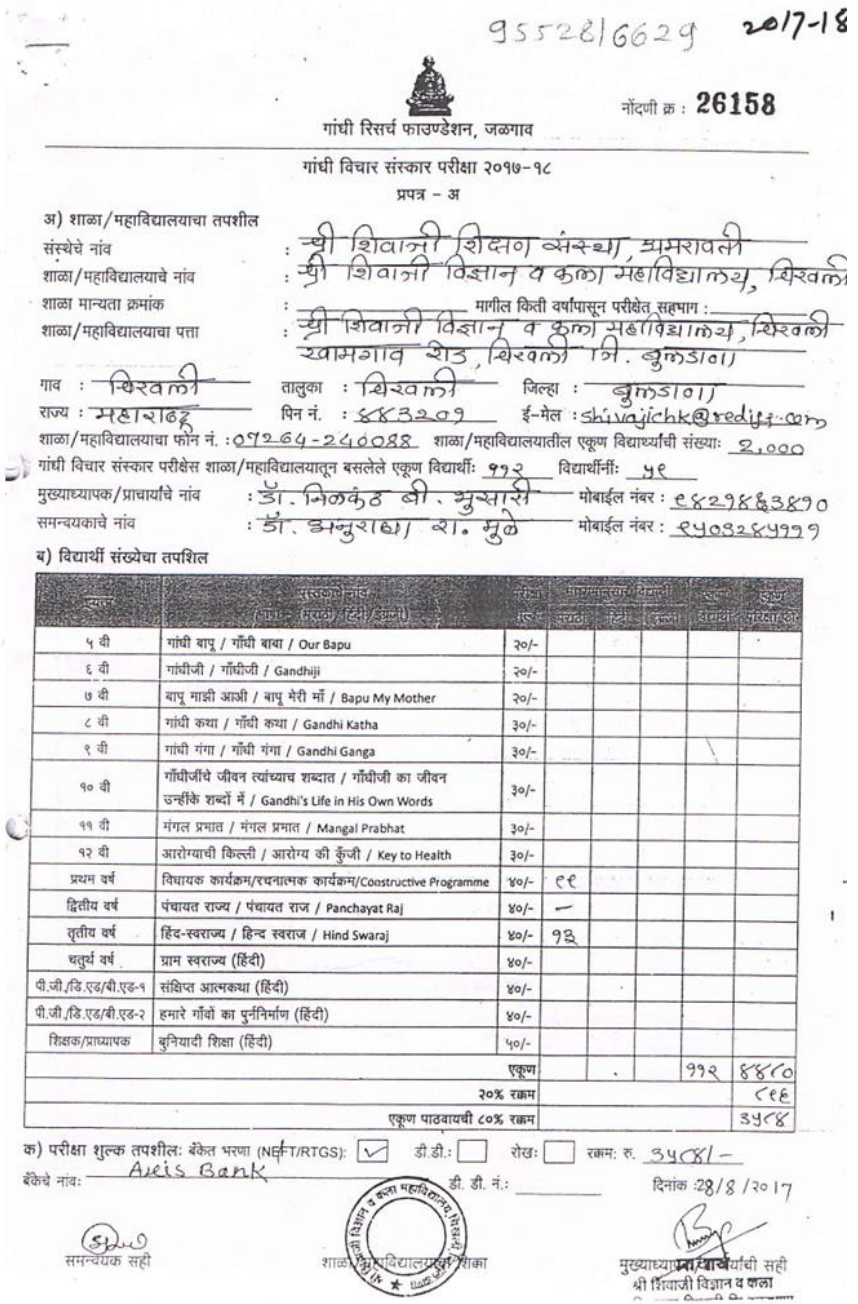 9552816629 2017-18
नोंदणी क्र : 26158
गांधी रिसर्च फाउण्डेशन, जळगाव
गांधी विचार संस्कार परीक्षा २०१७-१८
प्रपत्र - अ
अ) शाळा/महाविद्यालयाचा तपशील
संस्थेचे नांव : श्री शिवाजी शिक्षण संस्था, अमरावती
शाळा/महाविद्यालयाचे नांव : श्री शिवाजी विज्ञान व कला महाविद्यालय, चिखली
शाळा मान्यता क्रमांक : मागील किती वर्षांपासून परीक्षेत सहभाग :
शाळा/महाविद्यालयाचा पत्ता : श्री शिवाजी विज्ञान व कला महाविद्यालय, चिखली
खामगाव रोड, चिखली जि. बुलडाणा
गाव : चिखली तालुका : चिखली जिल्हा : बुलडाणा
राज्य : महाराष्ट्र पिन नं. : ४४३२०१ ई-मेल : shivajichk@rediff.com
शाळा/महाविद्यालयाचा फोन नं. : 07264-240088 शाळा/महाविद्यालयातील एकूण विद्यार्थ्यांची संख्याः 2,000
गांधी विचार संस्कार परीक्षेस शाळा/महाविद्यालयातून बसलेले एकूण विद्यार्थीः ११२ विद्यार्थीनींः ५९
मुख्याध्यापक/प्राचार्यांचे नांव : डॉ. निळकंठ बी. भुसारी मोबाईल नंबर :
समन्वयकाचे नांव : डॉ. अनुराधा रा. मुळे मोबाईल नंबर :
ब) विद्यार्थी संख्येचा तपशिल
पुस्तकाचे नांव परीक्षा माध्यमानुसार विद्यार्थी एकूण
(मराठी/हिंदी/इंग्रजी) मराठी हिंदी विद्यार्थी परीक्षा फी
५ वी गांधी बापू / गाँधी बाबा / Our Bapu २०/-
६ वी गांधीजी / गाँधीजी / Gandhiji २०/-
७ वी बापू माझी आई / बापू मेरी माँ / Bapu My Mother २०/-
८ वी गांधी कथा / गाँधी कथा / Gandhi Katha ३०/-
९ वी गांधी गंगा / गाँधी गंगा / Gandhi Ganga ३०/-
१० वी गाँधीजींचे जीवन त्यांच्याच शब्दात / गाँधीजी का जीवन
उन्हींके शब्दों में / Gandhi's Life in His Own Words ३०/-
११ वी मंगल प्रभात / मंगल प्रभात / Mangal Prabhat ३०/-
१२ वी आरोग्याची किल्ली / आरोग्य की कुँजी / Key to Health ३०/-
प्रथम वर्ष विधायक कार्यक्रम/रचनात्मक कार्यक्रम/Constructive Programme ४०/- ९९
द्वितीय वर्ष पंचायत राज्य / पंचायत राज / Panchayat Raj ४०/- –
तृतीय वर्ष हिंद-स्वराज्य / हिन्द स्वराज / Hind Swaraj ४०/- १३
चतुर्थ वर्ष ग्राम स्वराज्य (हिंदी) ४०/-
पी.जी./डि.एड/बी.एड-१ संक्षिप्त आत्मकथा (हिंदी) ४०/-
पी.जी./डि.एड/बी.एड-२ हमारे गाँवों का पुर्ननिर्माण (हिंदी) ४०/-
शिक्षक/प्राध्यापक बुनियादी शिक्षा (हिंदी) ५०/-
एकूण ११२ ४४८०
२०% रक्कम ८९६
एकूण पाठवायची ८०% रक्कम ३५८४
क) परीक्षा शुल्क तपशीलः बँकेत भरणा (NEFT/RTGS): ✓ डी.डी.: रोखः रक्कमः रु. ३५८४/-
बँकेचे नांवः Axis Bank डी. डी. नं.: दिनांक : 28/8/2017
समन्वयक सही शाळा/महाविद्यालयाचा शिक्का मुख्याध्यापक/प्राचार्यांची सही
प्राचार्य
श्री शिवाजी विज्ञान व कला